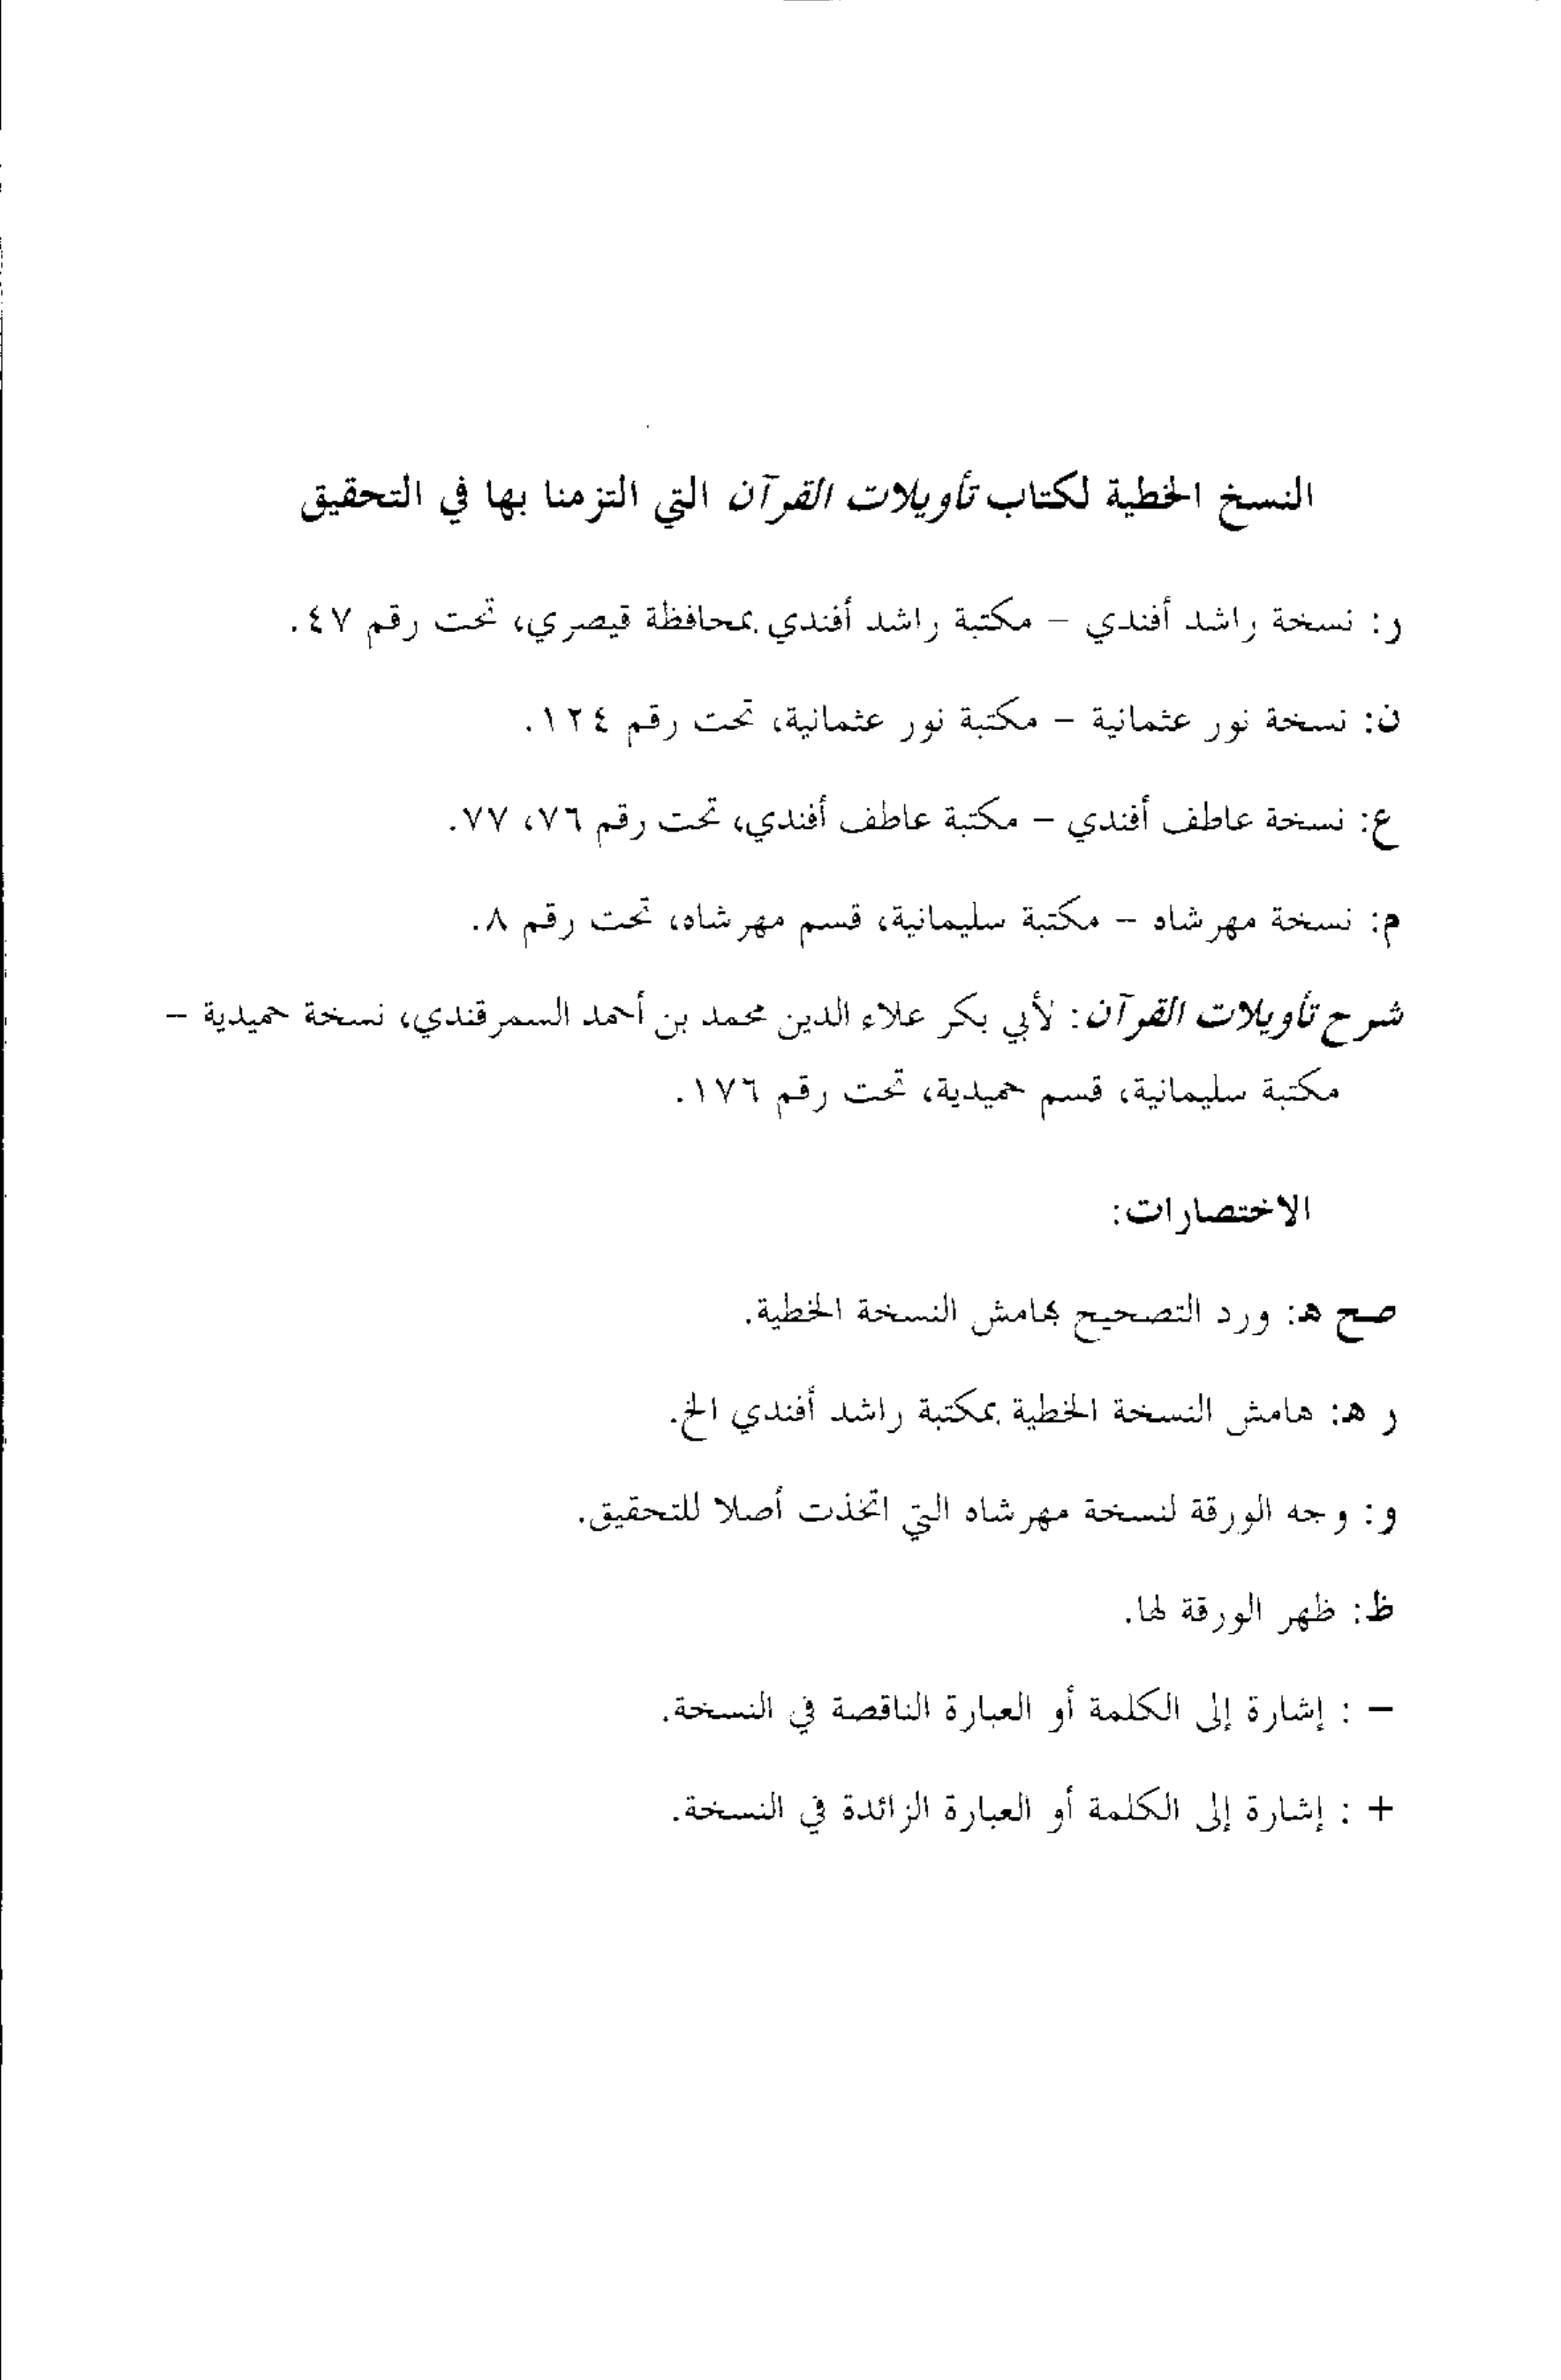 النسخ الخطية لكتاب تأويلات القرآن التي التزمنا بها في التحقيق
ر: نسخة راشد أفندي – مكتبة راشد أفندي بمحافظة قيصري، تحت رقم ٤٧.
ن: نسخة نور عثمانية – مكتبة نور عثمانية، تحت رقم ١٢٤.
ع: نسخة عاطف أفندي – مكتبة عاطف أفندي، تحت رقم ٧٦، ٧٧.
م: نسخة مهرشاه – مكتبة سليمانية، قسم مهرشاه، تحت رقم ٨.
شرح تأويلات القرآن: لأبي بكر علاء الدين محمد بن أحمد السمرقندي، نسخة حميدية –
مكتبة سليمانية، قسم حميدية، تحت رقم ١٧٦.
الاختصارات:
صح هـ: ورد التصحيح بهامش النسخة الخطية.
ر هـ: هامش النسخة الخطية بمكتبة راشد أفندي الخ.
و: وجه الورقة لنسخة مهرشاه التي اتخذت أصلا للتحقيق.
ظ: ظهر الورقة لها.
– : إشارة إلى الكلمة أو العبارة الناقصة في النسخة.
+ : إشارة إلى الكلمة أو العبارة الزائدة في النسخة.